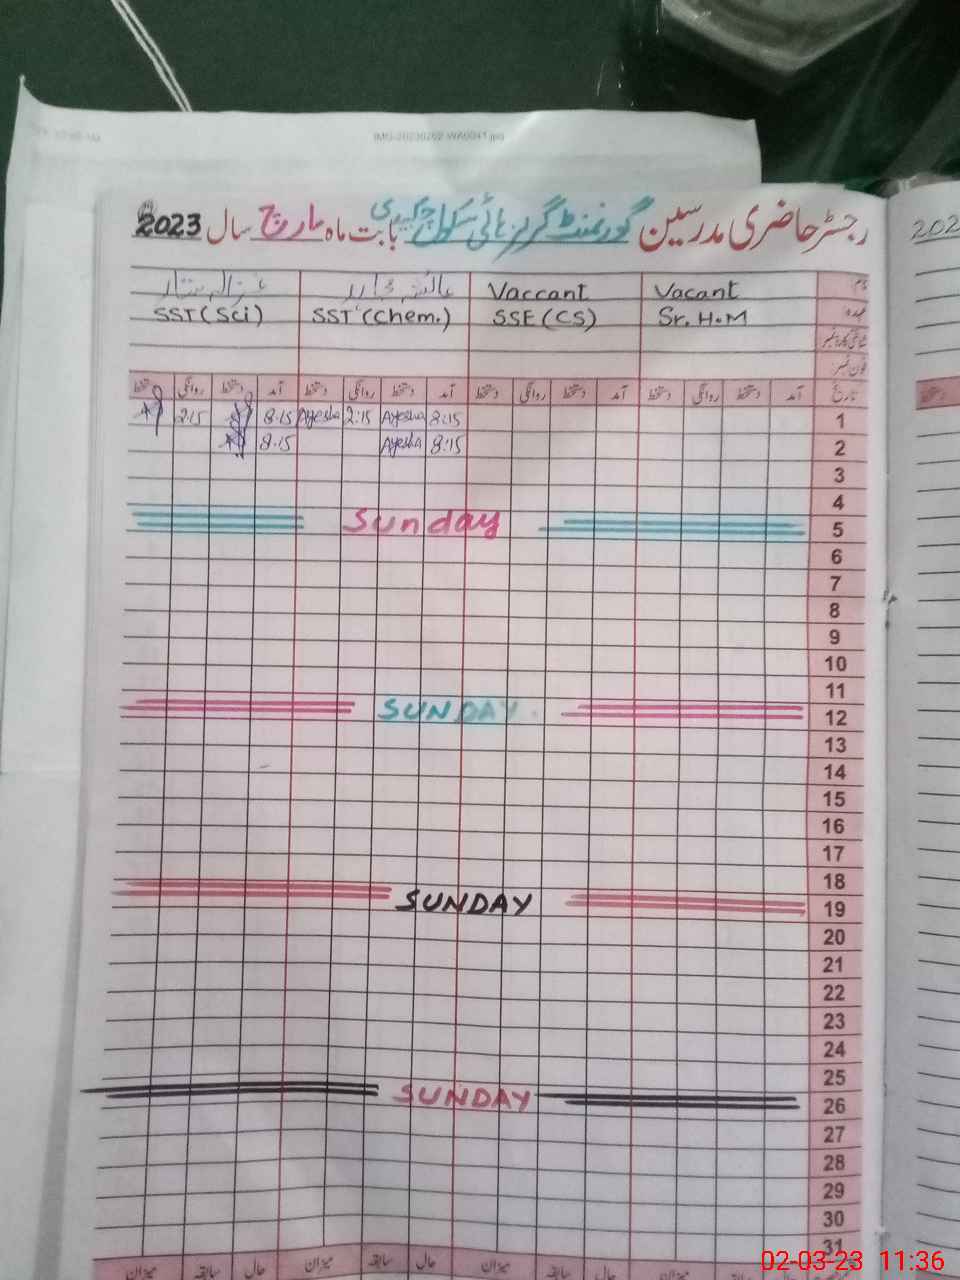 IMG-20230202-WA0041.jpg
رجسٹر حاضری مدرسین گورنمنٹ گرلز ہائی سکول چکیری بابت ماہ مارچ سال 2023
202
نام Vacant Vaccant
عہدہ Sr. H.M SSE (CS) SST (Chem.) SST (Sci)
شناختی کارڈ نمبر
فون نمبر
تاریخ آمد دستخط روانگی دستخط آمد دستخط روانگی دستخط آمد دستخط روانگی دستخط آمد دستخط روانگی دستخط
1 8:15 Ayesha 2:15 Ayesha 8:15 2:15
2 8:15 Ayesha 8:15
3
4
5 Sunday
6
7
8
9
10
11
12 SUNDAY
13
14
15
16
17
18
19 SUNDAY
20
21
22
23
24
25
26 SUNDAY
27
28
29
30
31
حال سابقہ میزان حال سابقہ میزان حال سابقہ میزان
02-03-23 11:36